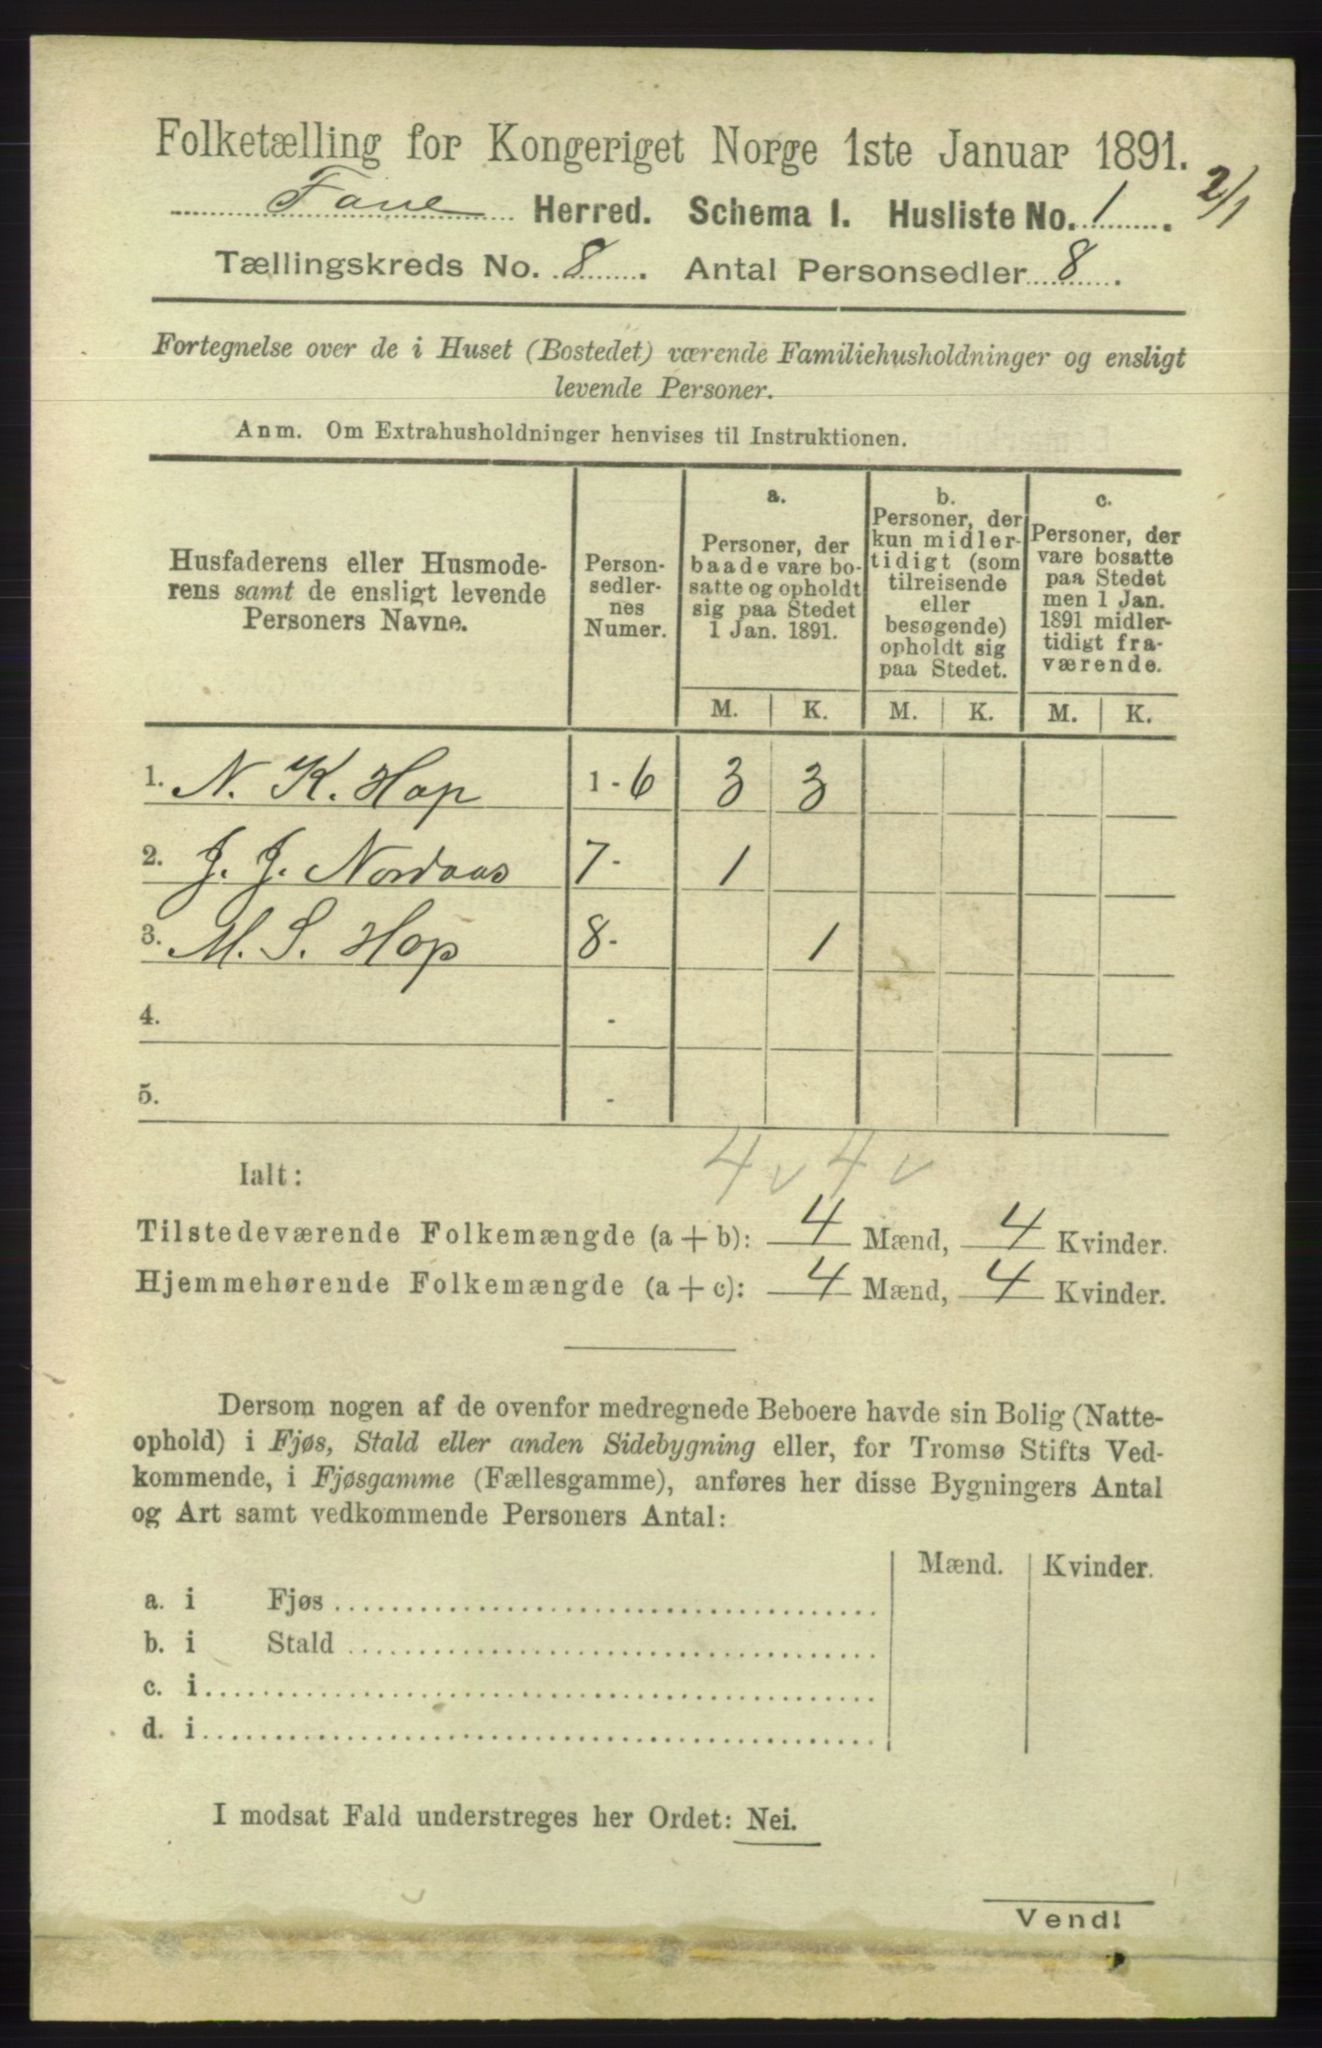 Folketælling for Kongeriget Norge 1ste Januar 1891.
Fane Herred. Schema I. Husliste No. 1. 2/1
Tællingskreds No. 8. Antal Personsedler 8.
Fortegnelse over de i Huset (Bostedet) værende Familiehusholdninger og ensligt
levende Personer.
Anm. Om Extrahusholdninger henvises til Instruktionen.
Husfaderens eller Husmode-
rens samt de ensligt levende
Personers Navne.
Person-
sedler-
nes
Numer.
a.
Personer, der
baade vare bo-
satte og opholdt
sig paa Stedet
1 Jan. 1891.
b.
Personer, der
kun midler-
tidigt (som
tilreisende
eller
besøgende)
opholdt sig
paa Stedet.
c.
Personer, der
vare bosatte
paa Stedet
men 1 Jan.
1891 midler-
tidigt fra-
værende.
M. K. M. K. M. K.
1. N. K. Hop 1 - 6 3 3
2. J. J. Nordaas 7 - 1
3. M. S. Hop 8 - 1
4. -
5. -
4 v 4 v
Ialt:
Tilstedeværende Folkemængde (a + b): 4 Mænd, 4 Kvinder.
Hjemmehørende Folkemængde (a + c): 4 Mænd, 4 Kvinder.
Dersom nogen af de ovenfor medregnede Beboere havde sin Bolig (Natte-
ophold) i Fjøs, Stald eller anden Sidebygning eller, for Tromsø Stifts Ved-
kommende, i Fjøsgamme (Fællesgamme), anføres her disse Bygningers Antal
og Art samt vedkommende Personers Antal:
Mænd. Kvinder.
a. i Fjøs
b. i Stald
c. i
d. i
I modsat Fald understreges her Ordet: Nei.
Vend!